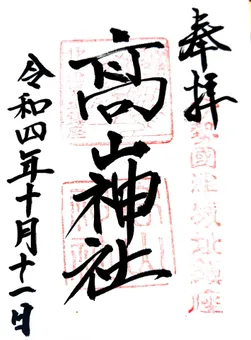 奉拝
高山神社
令和四年十月十一日